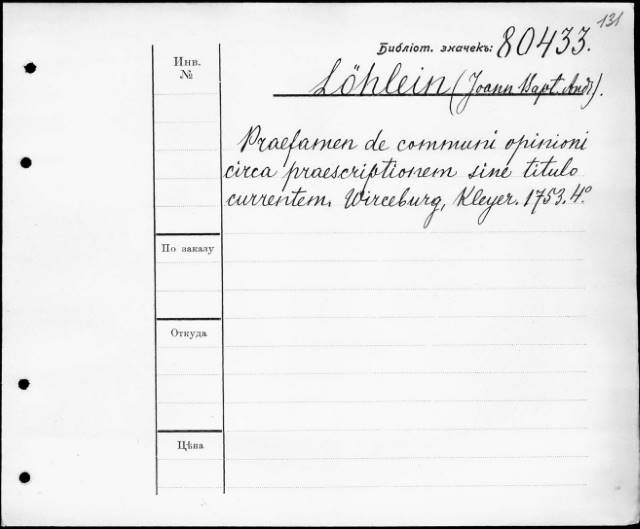 131
Библіот. значекъ: 80433.
Инв.
№
Löhlein (Joann Bapt. Andr).
Praefamen de communi opinioni
circa praescriptionem sine titulo
currentem. Wirceburg, Kleyer. 1753. 4°
По заказу
Откуда
Цѣна